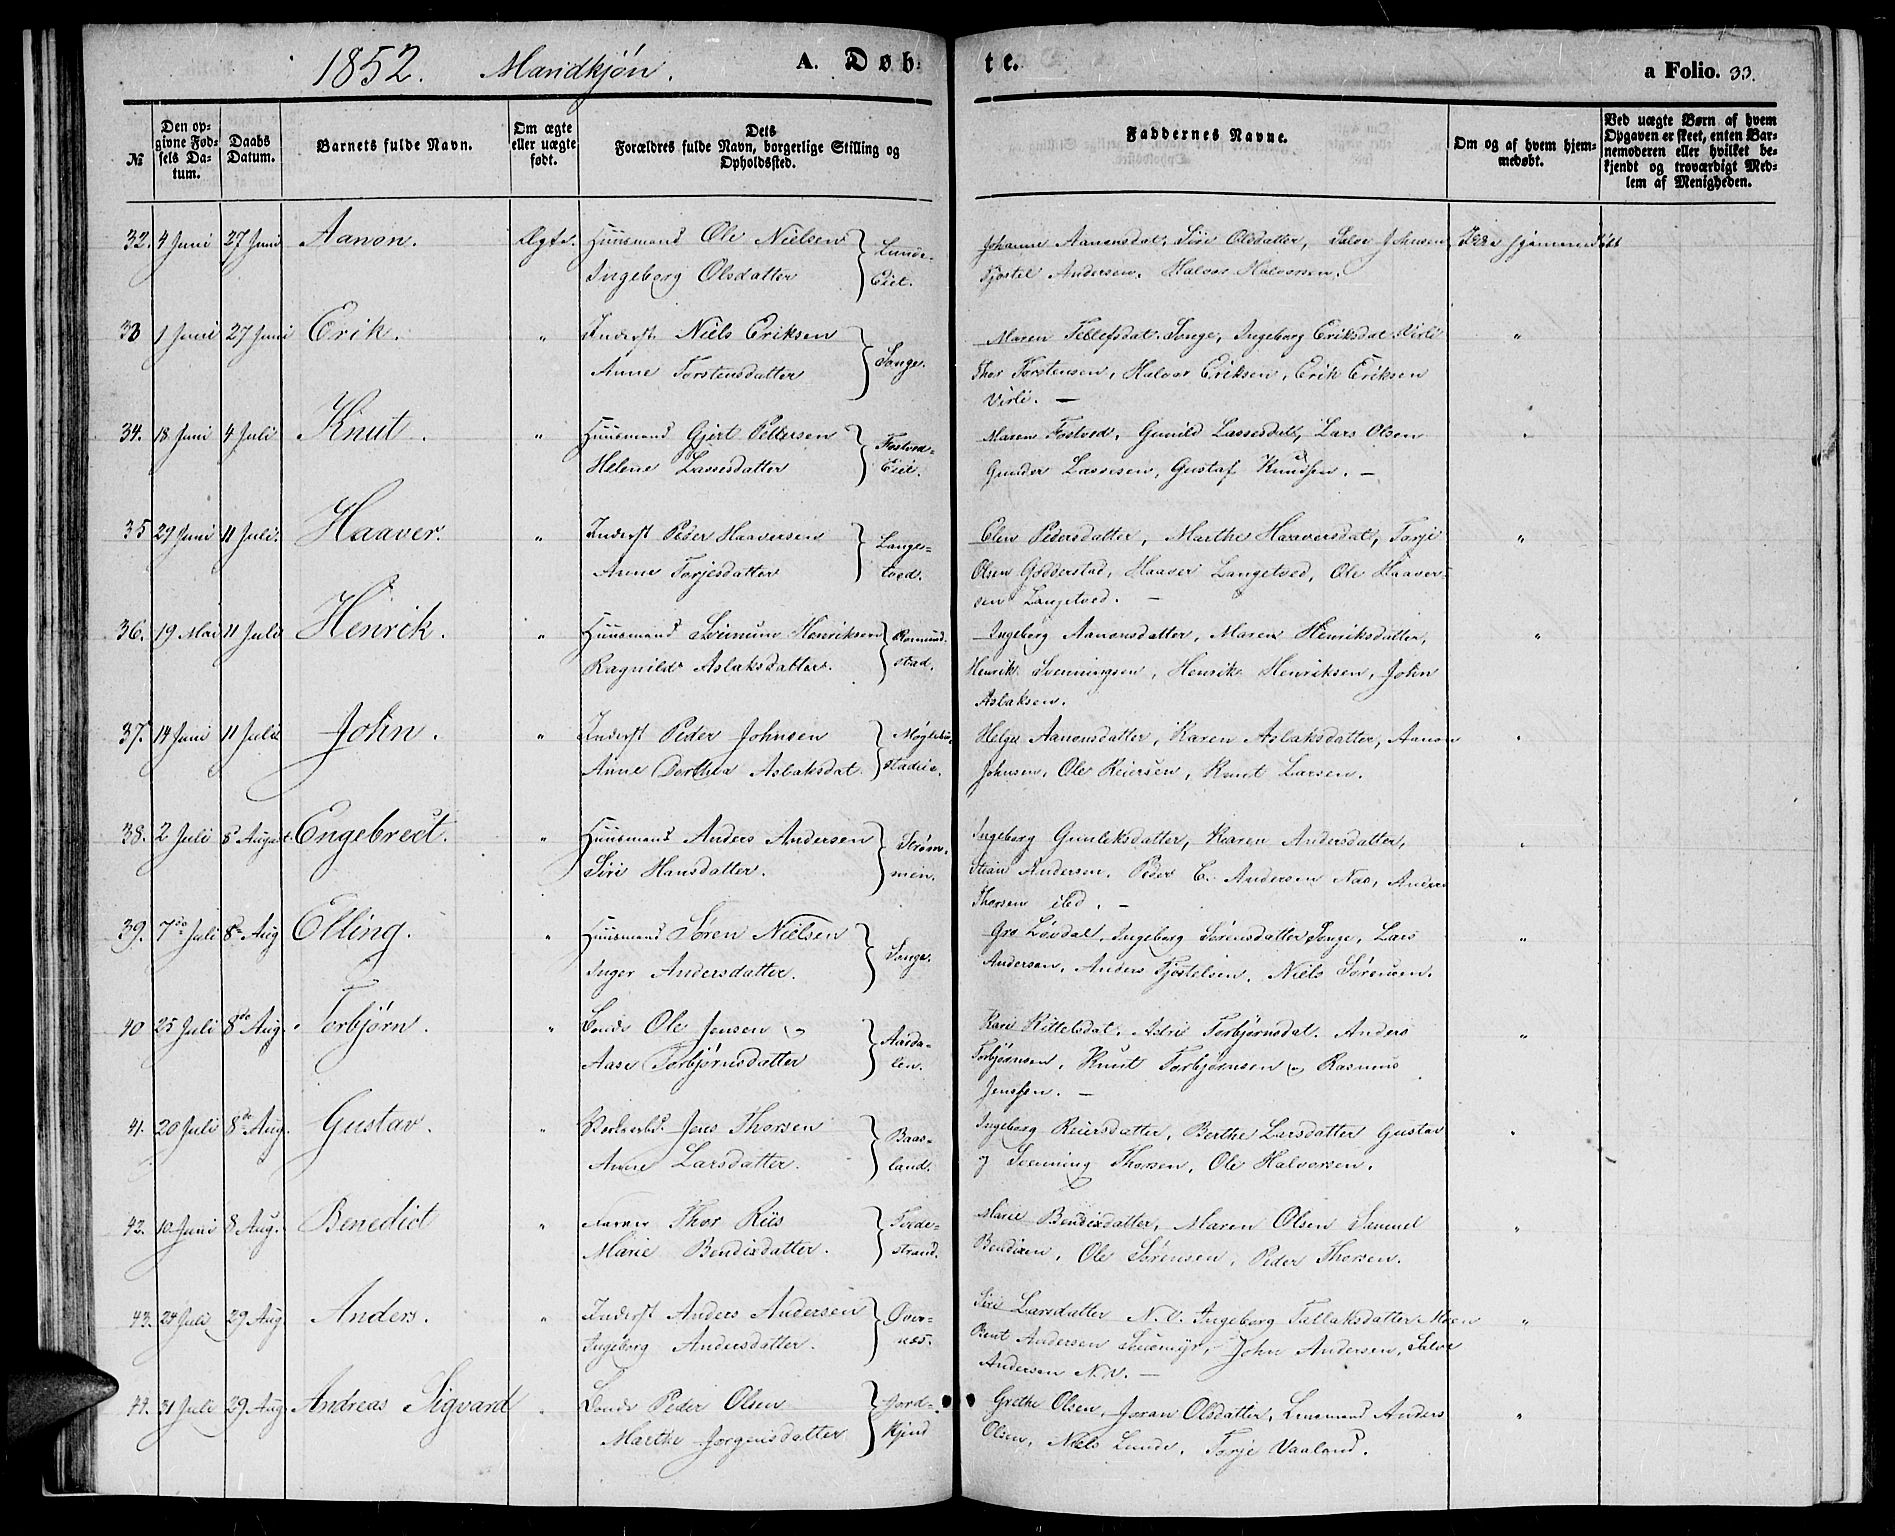 1852. Mandkjøn. A. Døbte. a Folio. 33.
№
Den opgivne Fødsels Datum.
Daabs Datum.
Barnets fulde Navn.
Om ægte eller uægte født.
Dets Forældres fulde Navn, borgerlige Stilling og Opholdssted.
Faddernes Navne.
Om og af hvem hjemmedøbt.
Ved uægte Børn af hvem Opgaven er skeet, enten Barnemoderen eller hvilket bekjendt og troværdigt Medlem af Menigheden.
32. 4 Juni 27 Juni Aanon. Ægte. Huusmand Ole Nielsen Lunde- Johanne Aanonsdat, Siri Olsdatter, Salve Johnsen Ikke hjemmedøbt
Ingeborg Olsdatter Eiet. Kjøstel Andersen, Halvor Halvorsen.
33 1 Juni 27 Juni Erik. " Inderst Niels Eriksen Songe. Maren Tellefsdat. Songe, Ingeborg Eriksdat Virli "
Anne Torstensdatter Thor Torstensen, Halvor Eriksen, Erik Eriksen
Virli. —
34. 18 Juni 4 Juli Knut. " Huusmand Gjert Pettersen Fostved- Maren Fostved, Gunild Lassesdat, Lars Olsen "
Helene Lassesdatter Eiet. Gunder Lassesen, Gustaf Knudsen. —
35 29 Juni 11 Juli. Haaver. " Inderst Peder Haaversen Lange- Elen Pedersdatter, Marthe Haaversdat, Torje "
Anne Torjesdatter tved. Olsen Godderstad, Haaver Langetved, Ole Haaver-
sen Langetved. —
36. 19 Mai 11 Juli Henrik. " Huusmand Svenum Henriksen Romund- Ingeborg Aanonsdatter, Maren Henriksdatter, "
Ragnild Aslaksdatter. stad. Henrik Svenningsen, Henrik Henriksen, John
Aslaksen.
37. 14 Juni 11 Juli John. " Inderst Peder Johnsen Helge Aanonsdatter, Karen Aslaksdatter, Aanon "
Anne Dorthea Aslaksdat. Johnsen, Ole Reiersen, Knut Larsen.
38. 2 Juli 8 August. Engebrect. " Huusmand Anders Andersen Strøm- Ingeborg Gunleksdatter, Karen Andersdatter, "
Siri Hansdatter. men. Stian Andersen, Peder C. Andersen Næs, Anders
Thorsen ibd. —
39. 7de Juli 8de Aug Elling. " Huusmand Søren Nielsen Songe. Gro Løvdal, Ingeborg Sørensdatter Songe, Lars "
Inger Andersdatter. Andersen, Anders Fjøstelsen, Niels Sørensen.
40 25 Juli 8de Aug. Torbjørn. " Bonde Ole Jensen Aasda- Kari Kittelsdat, Astri Torbjørnsdat. Anders "
Aase Torbjørnsdatter len. Torbjørnsen, Knut Torbjørnsen Rasmus
Jenssen. —
41. 20 Juli 8de Aug. Gustav. " Jens Thorsen Baas- Ingeborg Reiersdatter, Berthe Larsdatter Gustav "
Anne Larsdatter. land. og Svenning Thorsen, Ole Halvorsen.
42. 10 Juni 8 Aug. Benedict " Thor Riis Tvede- Marie Bendixdatter, Maren Olsen Samuel "
Marie Bendixdatter. strand. Bendixen, Ole Sørensen, Peder Thorsen.
43. 24 Juli 29 Aug Anders. " Inderst Anders Andersen Over- Siri Larsdatter N. V. Ingeborg Tallaksdatter "
Ingeborg Andersdatter. næs. Andersen John Andersen, Salve
Andersen N.V. —
44. 31 Juli 29 Aug. Andreas Sigvard " Bonde Peder Olsen Grethe Olsen, Joran Olsdatter, Lensmand Anders "
Marthe Jørgensdatter Kjend Olsen, Niels Lunde, Torje Vaaland.